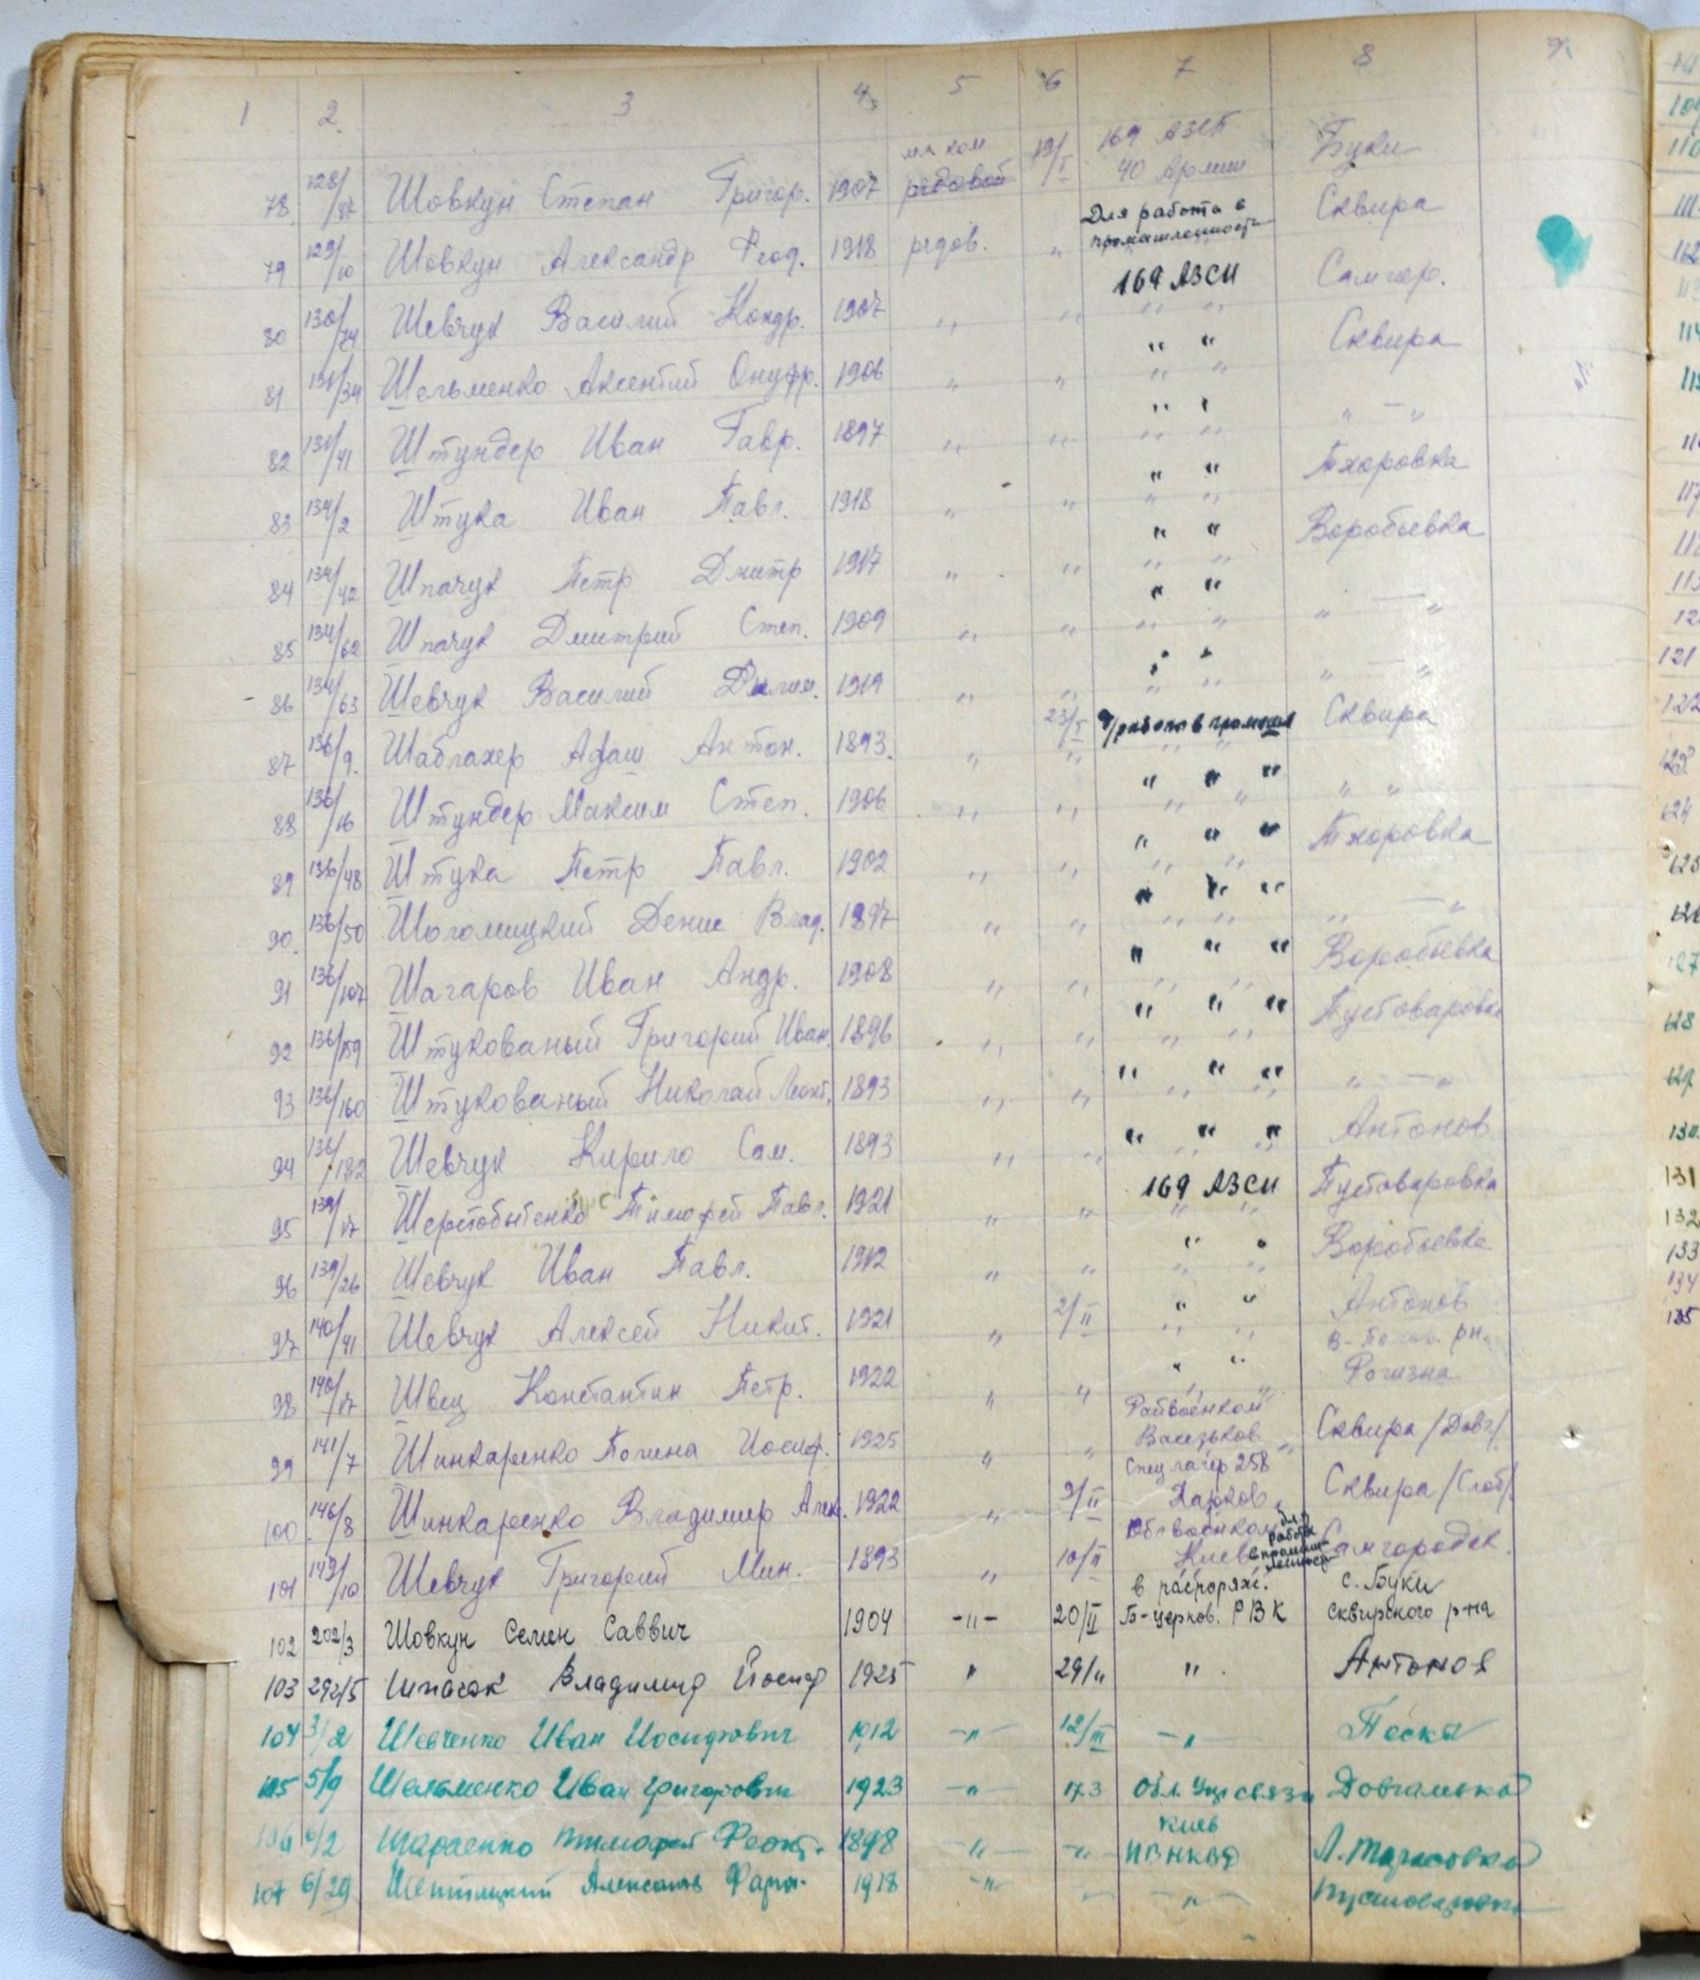 1 2. 3 4 5 6 7 8 9
мл ком 19/I 169 АЗСП Буки
78 128/47 Шовкун Степан Григор. 1907 рядовой 40 Армии
Для работы в Сквира
79 129/10 Шовкун Александр Феод. 1918 рядов. " промышленность
169 АЗСП Самгор.
80 130/74 Шевчук Василий Кондр. 1907 " " " "
" " Сквира
81 131/34 Шельменко Аксентий Онуфр. 1906 " " " "
" " " — "
82 131/41 Штундер Иван Гавр. 1897 " " " "
" " Тхоровка
83 134/2 Штука Иван Павл. 1918 " " " "
" " Воробьевка
84 134/42 Шпачук Петр Дмитр 1917 " " " "
" " " — "
85 134/62 Шпачук Дмитрий Степ. 1909 " " " "
" " " — "
86 134/63 Шевчук Василий Филим. 1919 " " " "
23/I д/работы в промышл Сквира
87 136/9. Шаблахер Адам Антон. 1893. " " " "
" " " " "
88 136/16 Штундер Максим Степ. 1906 " " " "
" " " Тхоровка
89 136/48 Штука Петр Павл. 1902 " " " "
" " " " — "
90. 136/50 Шоломицкий Денис Влад. 1897 " " " "
" " " Воробьевка
91 136/107 Шагаров Иван Андр. 1908 " " " "
" " " Пустоваровка
92 136/159 Штукованый Григорий Иван. 1896 " " " "
" " " " — "
93 136/160 Штукованый Николай Леонт. 1893 " " " "
" " " Антонов
94 136/182 Шевчук Кирило Сам. 1893 " " " "
169 АЗСП Пустоваровка
95 139/17 Шерстобытенко Тимофей Павл. 1921 " " " "
" " Воробьевка
96 139/26 Шевчук Иван Павл. 1912 " " " "
2/II " " Антонов
97 140/41 Шевчук Алексей Никит. 1921 " " " рн.
" " Рогизна
98 140/17 Швец Константин Петр. 1922 " " " "
Райвоенком
Васильков Сквира /Довг/.
99 141/7 Шинкаренко Полина Иосиф. 1925 " " "
Спец лагер 258
9/II Харков Сквира /Слоб/.
100. 146/8 Шинкаренко Владимир Алек. 1922 "
Облвоенком для работы
10/II Киев в промышленности Самгородок.
101 149/10 Шевчук Григорий Мин. 1893 "
в распоряж. с. Буки
102 202/3 Шовкун Семен Саввич 1904 -"- 20/II Б-церков. РВК Сквирского р-на
103 292/5 Шпачок Владимир Йосиф 1925 " 29/" " Антонов
104 3/2 Шевченко Иван Иосифович 1912 -"- 12/III -"- Пески
105 5/9 Шельменко Иван Григорович 1923 -"- 17.3 Обл. Упр связи Довгалевка
Киев
106 6/2 Тимофей Феокт. 1898 -"- -"- НКВД Л. Тарасовка
107 6/29 Шептицкий 1918 -"- -"- Пустоваровка